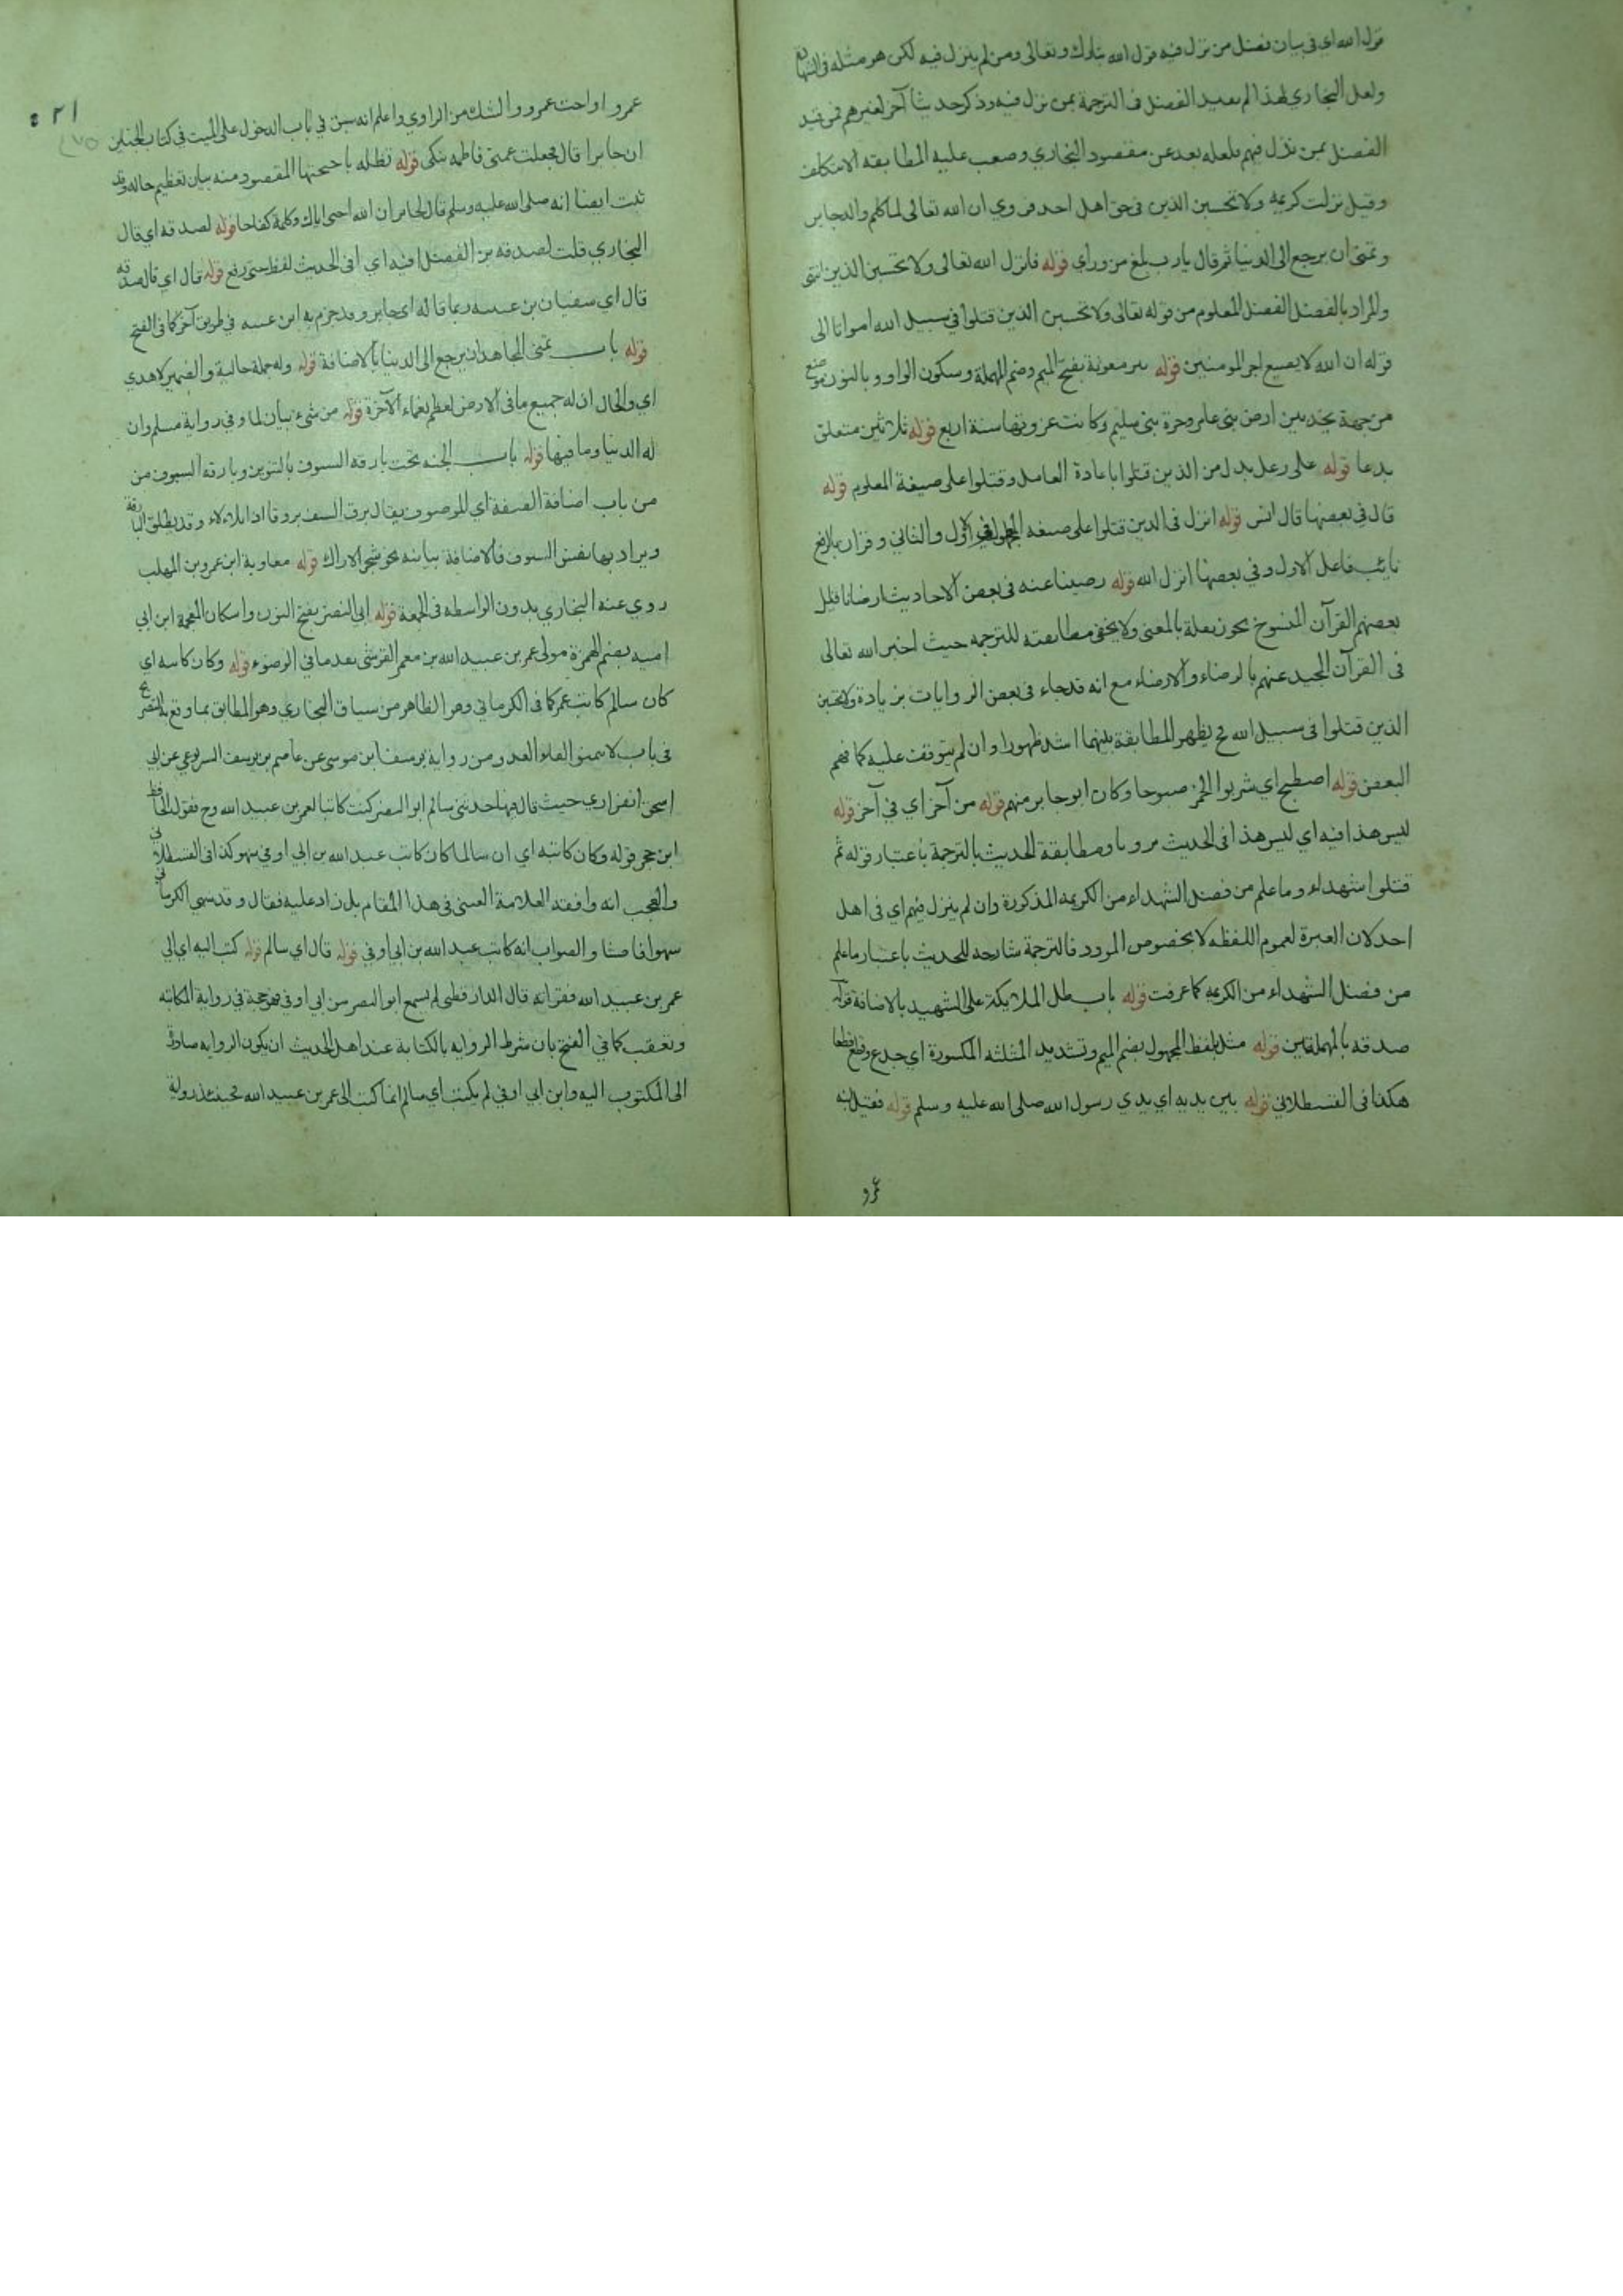 قول الله اي في بيان فضل من نزل فيه قول الله تبارك وتعالى ومن لم ينزل فيه لكن هو مثله في الشهادة
ولعل البخاري لهذا لم يعيد الفضل في الترجمة بمن نزل فيه وذكر حديثا آخر لغيرهم فمن قيد
الفضل بمن نزل فيهم فلعله بعد عن مقصود البخاري وصعب عليه المطابقه الا بتكلف
وقيل نزلت كريمة ولا تحسبن الذين في حق اهل احد فروي ان الله تعالى لما كلم والد جابر
وتمنى ان يرجع الى الدنيا ثم قال يا رب بلغ من ورأي قوله فانزل الله تعالى ولا تحسبن الذين انتهى
والمراد بالفضل الفضل المعلوم من قوله تعالى ولا تحسبن الذين قتلوا في سبيل الله امواتا الى
قوله ان الله لا يضيع اجر المومنين قوله بير معونة بفتح الميم وضم المهملة وسكون الواو وبالنون موضع
من جهة نجد بين ارض بني عامر وحرة بني سليم وكانت غزوتها سنة اربع قوله ثلاثين متعلق
بدعا قوله على رعل بدل من الذين قتلوا باعادة العامل وقتلوا على صيغة المعلوم قوله
قال في بعضها قال انس قوله انزل في الذين قتلوا على صيغه المجهول في الاول والثاني وقران بالرفع
نايب فاعل الاول وفي بعضها انزل الله قوله رضينا عنه في بعض الاحاديث ارضانا فليل
بعضهم القرآن المنسوخ يجوز نقله بالمعنى ولا يخفى مطابقته للترجمه حيث اخبر الله تعالى
في القرآن المجيد عنهم بالرضاء والارضاء مع انه قد جاء في بعض الروايات بزيادة ولا تحسبن
الذين قتلوا في سبيل الله ح يظهر المطابقة بينهما اشد ظهورا وان لم يتوقف عليه كما فهم
البعض قوله اصطبح اي شربوا الخمر صبوحا وكان ابو جابر منهم قوله من آخر اي في آخر قوله
ليس هذا فيه اي ليس هذا في الحديث مرويا ومطابقة الحديث بالترجمة باعتبار قوله ثم
قتلوا شهداء وما علم من فضل الشهداء من الكريمه المذكورة وان لم ينزل فيهم اي في اهل
احد لان العبرة لعموم اللفظه لا بخصوص المورد فالترجمة شارحه للحديث باعتبار ما علم
من فضل الشهداء من الكريمه كما عرفت قوله باب ظل الملايكة على الشهيد بالاضافة قوله
صدقه بالمهملتين قوله مثل بلفظ المجهول بضم الميم وتشديد المثلثه المكسورة اي جدع وقطع قطعا
هكذا في القسطلاني قوله بين يديه اي يدي رسول الله صلى الله عليه وسلم قوله فقيل ابنه
عمرو
٢١
عمرو او اخت عمرو والشك من الراوي واعلم انه سبق في باب الدخول على الميت في كتاب الجنايز
ان جابرا قال فجعلت عمتي فاطمه تبكى قوله تظله باجنحتها المقصود منه بيان تعظيم حاله وقد
ثبت ايضا انه صلى الله عليه وسلم قال لجابر ان الله احيى اباك وكلمه كفاحا قوله لصدقه اي قال
البخاري قلت لصدقه بن الفضل افيه اي افي الحديث لفظ حتى رفع قوله قال اي قال صدقه
قال اي سفيان بن عيينه ربما قاله اي جابر وقد جزم به ابن عيينه في طريق آخر كما في الفتح
قوله باب تمنى المجاهد ان يرجع الى الدنيا بالاضافة قوله وله جملة حالية والضمير لاحدي
اي والحال ان له جميع ما في الارض لعظم نعماء الآخرة قوله من شيء بيان لما وفي رواية مسلم وان
له الدنيا وما فيها قوله باب الجنه تحت بارقه السيوف بالتنوين وبارقه السيوف من
من باب اضافة الصفة اي للموصوف يقال برق السيف بروقا اذا تلاءلاء وقد يطلق البارقة
ويراد بها نفس السيوف فالاضافة بيانيه نحو شجر الاراك قوله معاوية ابن عمرو بن المهلب
روي عنه البخاري بدون الواسطه في الجمعة قوله ابي النضر بفتح النون واسكان المعجمة ابن ابي
اميه بضم الهمزة مولى عمر بن عبيد الله بن معمر القرشى بعد ما في الوضوء قوله وكان كاتبه اي
كان سالم كاتب عمر كما في الكرماني وهو الظاهر من سياق البخاري وهو المطابق بما وقع به التصريح
في باب لا تمنوا لقاء العدو من رواية يوسف ابن موسى عن عاصم بن يوسف اليربوعي عن ابي
اسحق الفزاري حيث قال فيها حدثني سالم ابو النضر كنت كاتبا لعمر بن عبيد الله وح فقول الحافظ
ابن حجر قوله وكان كاتبه اي ان سالما كان كاتب عبد الله بن ابي اوفي سهو كذا في القسطلاني
والعجب انه وافقه العلامة العيني في هذا المقام بل زاد عليه فقال وقد سهى الكرماني
سهوا فاحشا والصواب انه كاتب عبد الله بن ابي اوفي قوله قال اي سالم قوله كتب اليه اي الى
عمر بن عبيد الله فقراته قال الدارقطني لم يسمع ابو النضر من ابي اوفي فهو حجة في رواية المكاتبه
وتعقب كما في الفتح بان شرط الروايه بالكتابة عند اهل الحديث ان يكون الروايه صادرة
الى المكتوب اليه وابن ابي اوفي لم يكتب اي سالم انما كتب الى عمر بن عبيد الله فحينئذ رواية